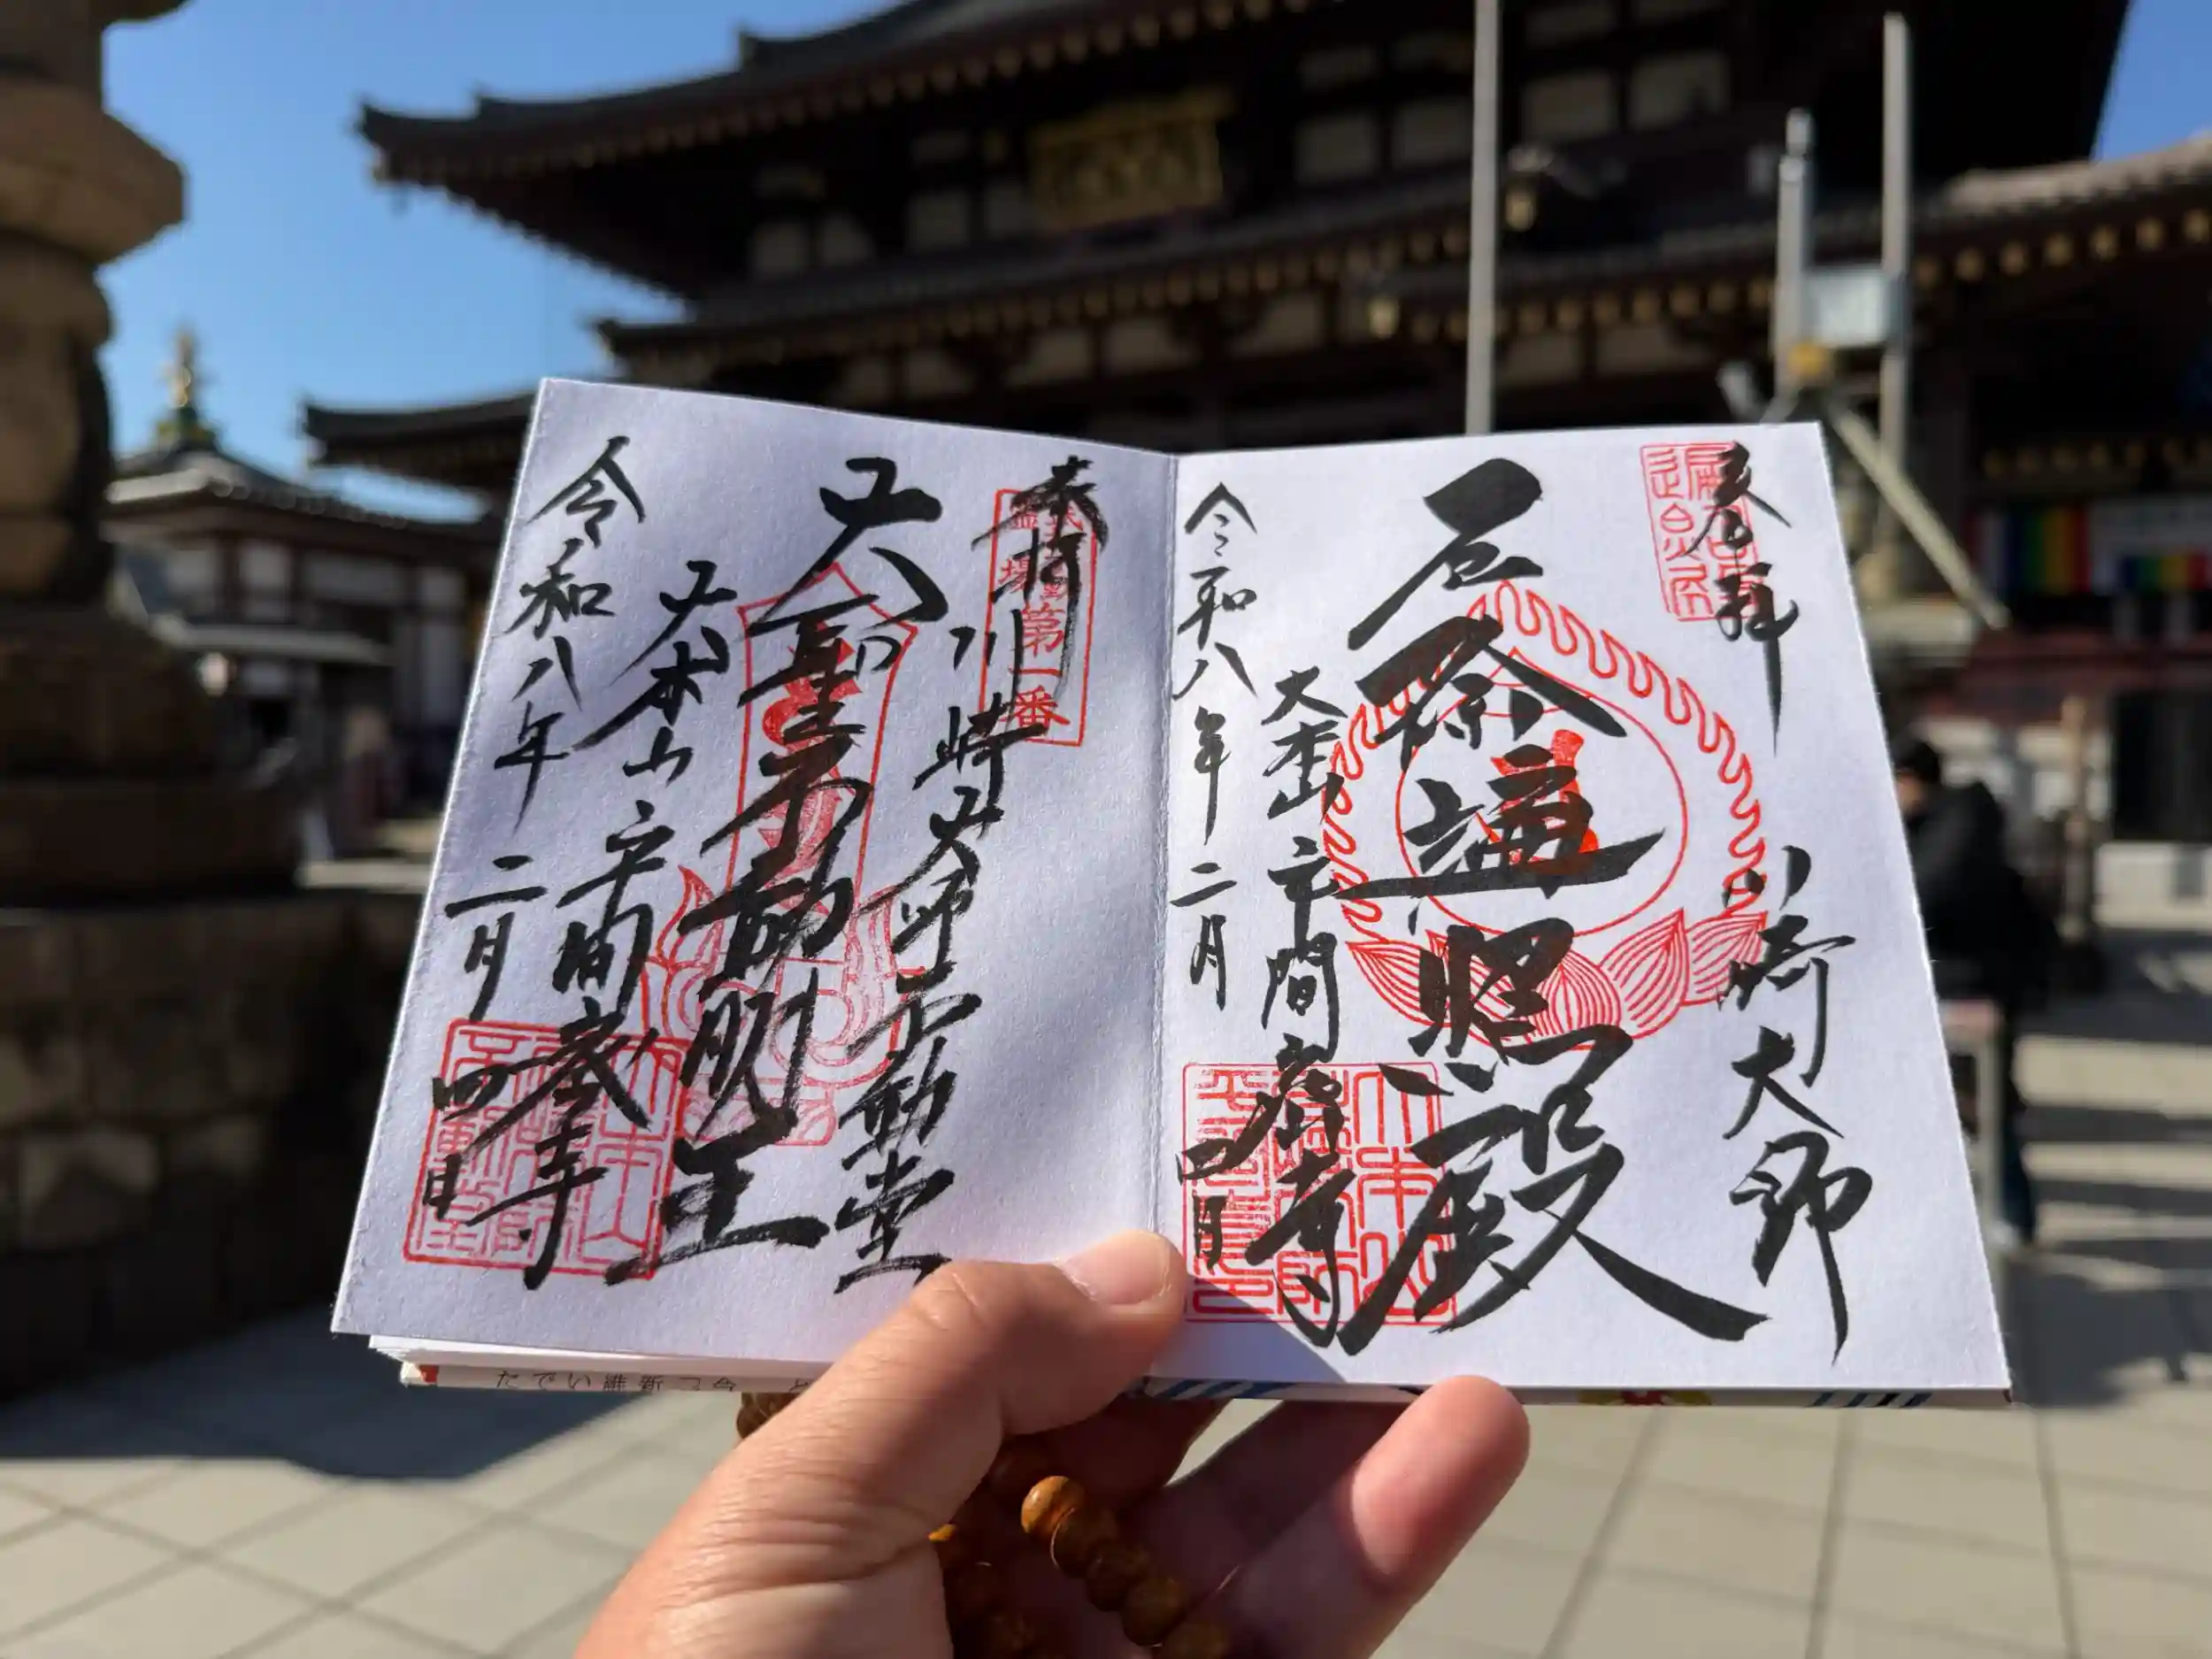 奉拝
川崎大師
厄除遍照殿
大本山平間寺
令和八年二月四日
奉拝
川崎大師不動堂
第一番
大聖不動明王
大本山平間寺
令和八年二月四日